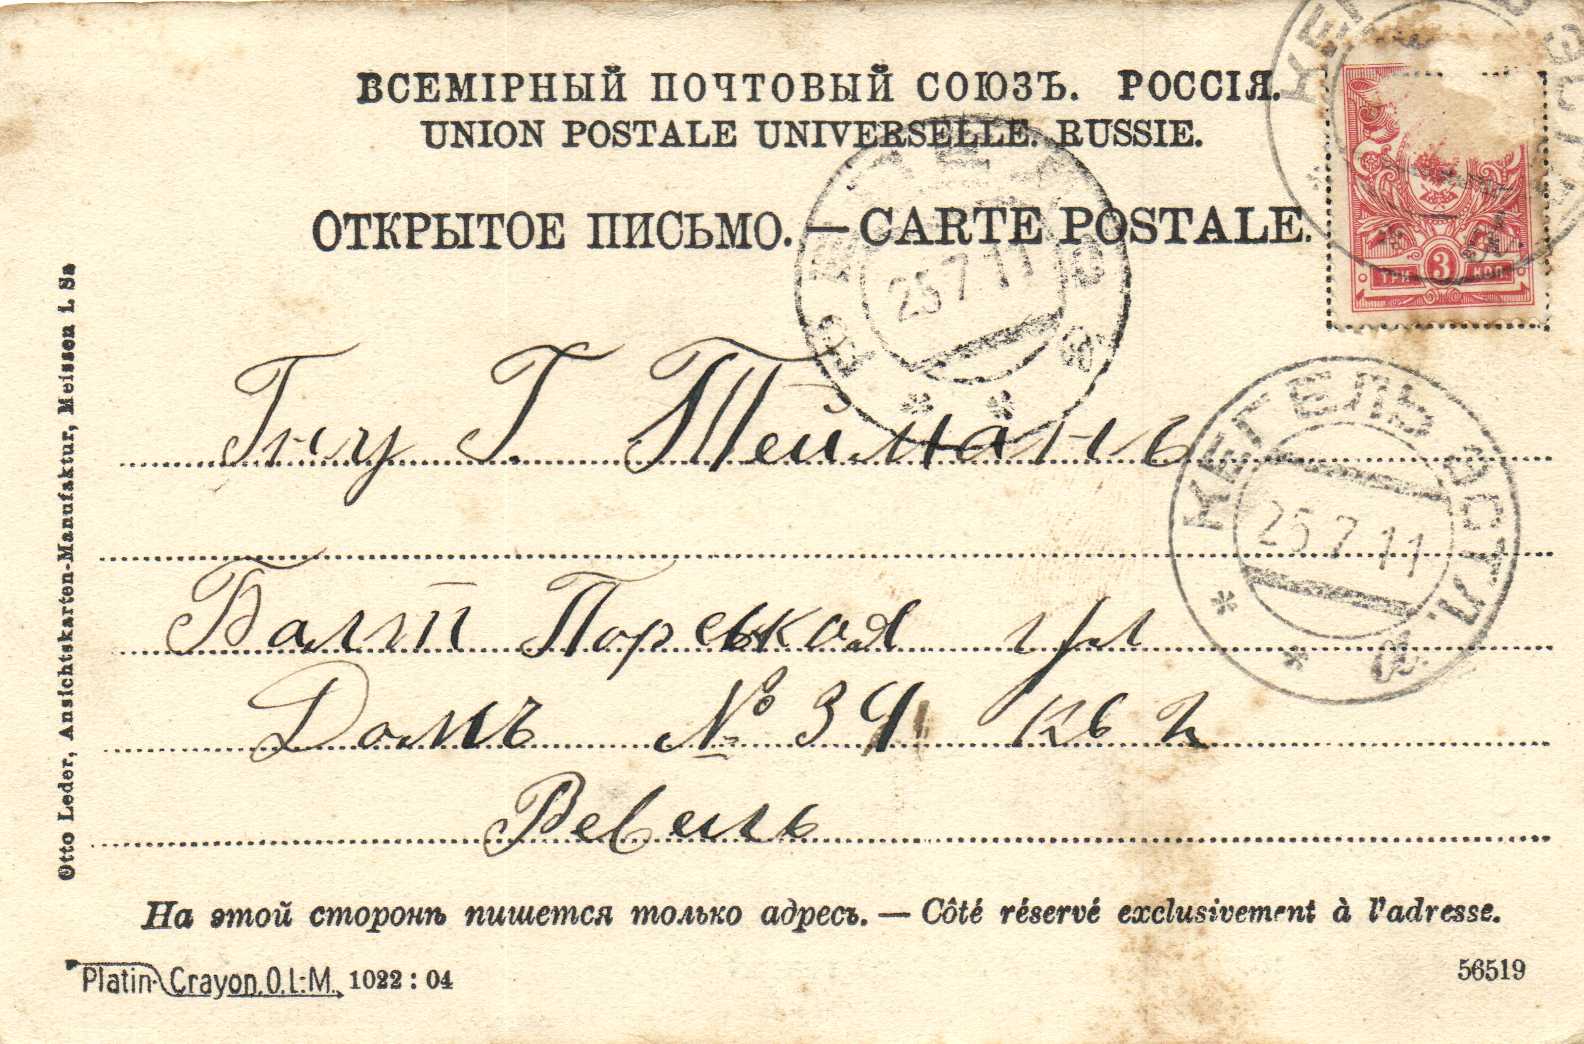 ВСЕМІРНЫЙ ПОЧТОВЫЙ СОЮЗЪ. РОССІЯ.
UNION POSTALE UNIVERSELLE. RUSSIE.
ОТКРЫТОЕ ПИСЬМО. — CARTE POSTALE.
ТРИ 3 КОП
25 7 11
КЕГЕЛЬ ЭСТЛ.
25 7 11
а
Гну Г. Тейманъ
Балт Порськоя ул
Домъ № 34 кв 2
Ревель
На этой сторонѣ пишется только адресъ. — Côté réservé exclusivement à l'adresse.
Platin-Crayon. O.L.M. 1022 : 04
56519
Otto Leder, Ansichtskarten-Manufaktur, Meissen i. Sa